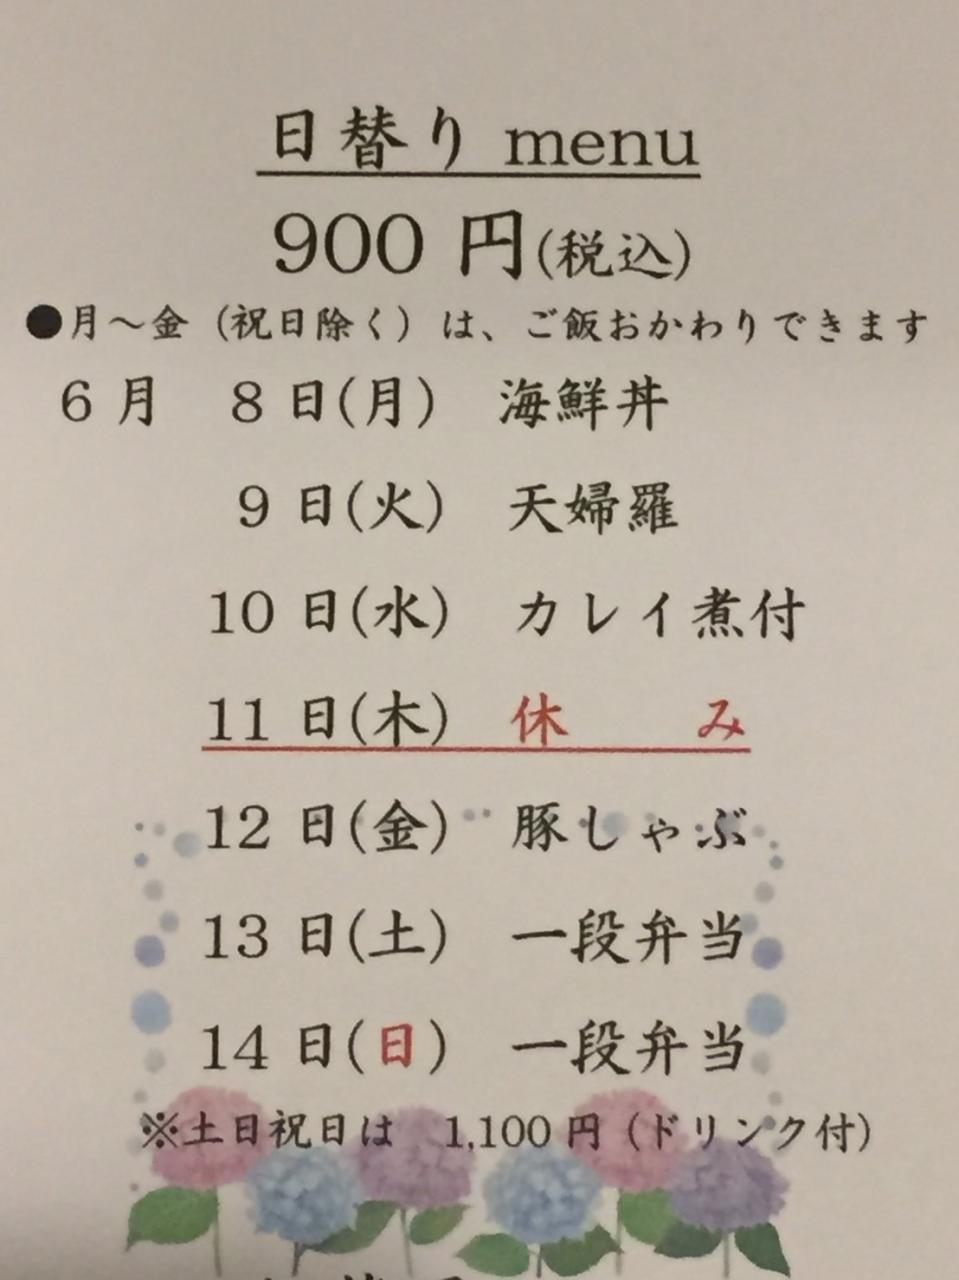 日替り menu
900 円(税込)
●月～金（祝日除く）は、ご飯おかわりできます
6 月 8 日(月) 海鮮丼
9 日(火) 天婦羅
10 日(水) カレイ煮付
11 日(木) 休 み
12 日(金) 豚しゃぶ
13 日(土) 一段弁当
14 日(日) 一段弁当
※土日祝日は 1,100 円（ドリンク付）